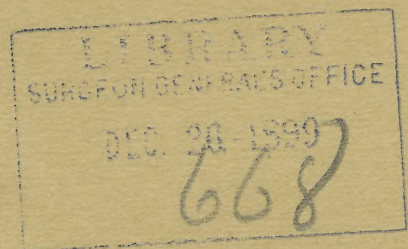 LIBRARY
SURGEON GENERAL'S OFFICE
DEC. 20-1899
668